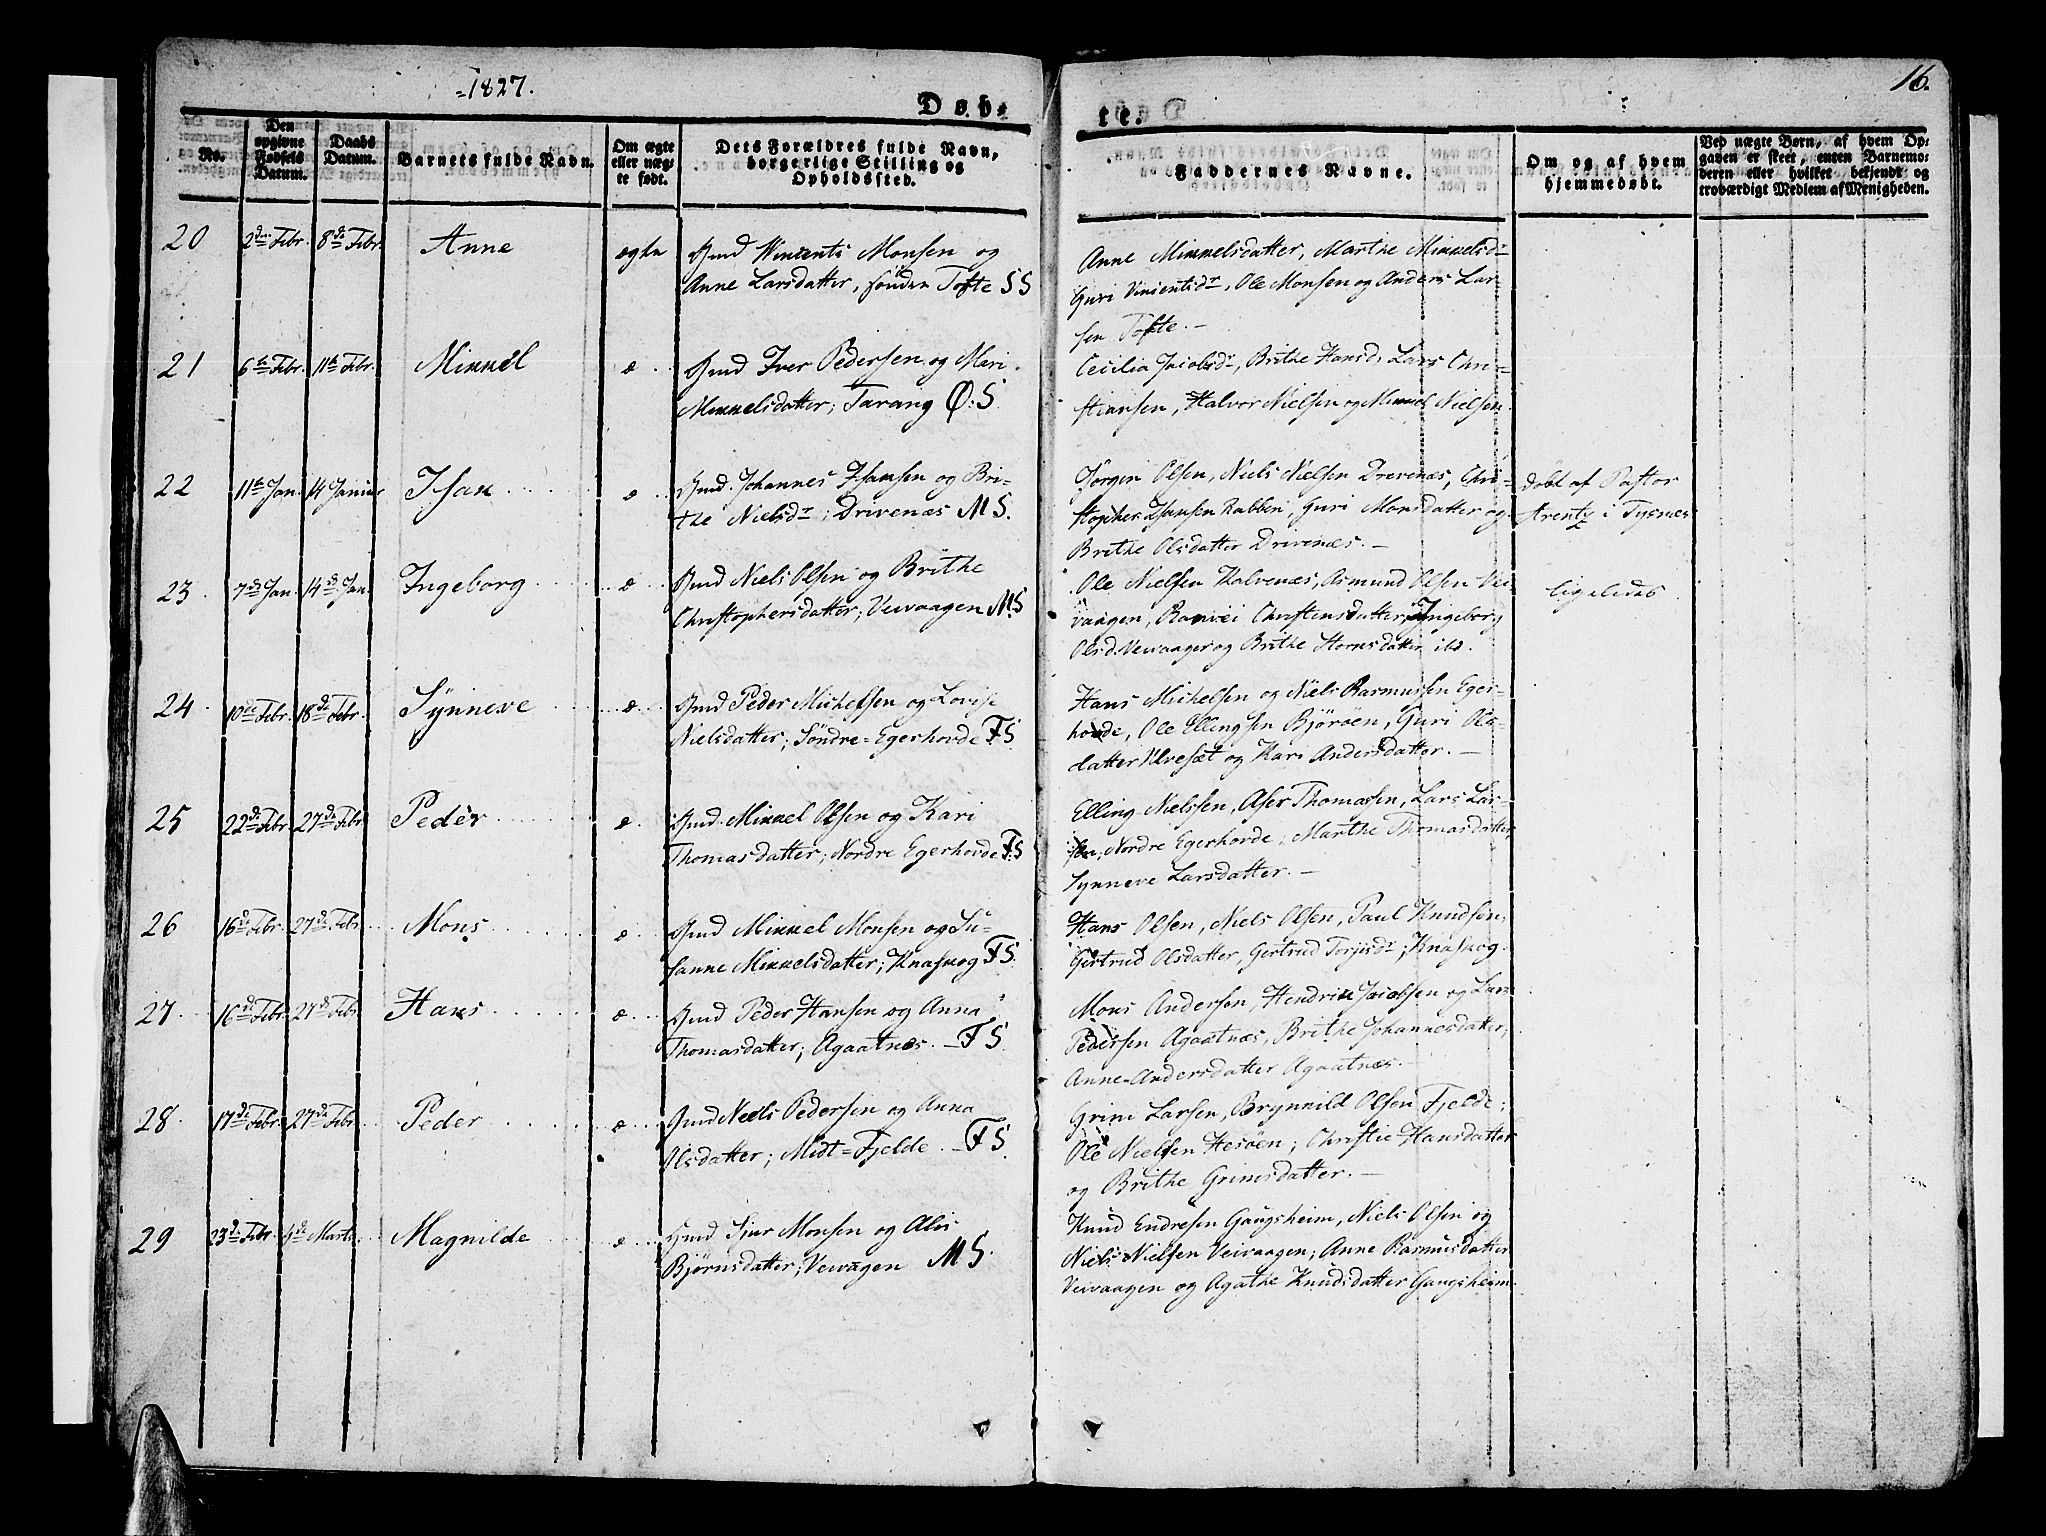 1827.
16.
Døb-
te.
No.
Den opgivne Fødsels Datum.
Daabs Datum.
Barnets fulde Navn.
Om ægte eller uægte født.
Dets Forældres fulde Navn, borgerlige Stilling og Opholdssted.
Faddernes Navne.
Om og af hvem hjemmedøbt.
Ved uægte Børn, af hvem Opgaven er skeet, enten Barnemoderen eller hvilket bekjendt og troværdigt Medlem af Menigheden.
20 2den Febr. 8de Febr. Anne ægte
Gmd Vincents Monsen og
Anne Larsdatter, sönder Tofte SS
Anne Mikkelsdatter, Marthe Mikkelsdr
Guri Vincentsdr, Ole Monsen og Anders Lar-
sen Tofte. —
21 6te Febr. 11te Febr. Mikkel æ
Gmd Iver Pedersen og Mari
Mikkelsdatter; Tarang Ø:S.
Cecilia Jacobsdr, Brithe Hansd, Lars Chri-
stiansen, Halvor Nielsen og Mikkel Nielsen.
22 11te Jan. 14 Januar Isak æ
Gmd. Johannes Isaksen og Bri-
the Nielsdr; Drivenæs MS.
Jörgen Olsen, Niels Nielsen Drevenæs, Chri-
stopher Isaksen Rabben, Guri Monsdatter og
Brithe Olsdatter Drivenæs. —
döbt af Pastor
Arentz i Tysnes
23 7de Jan. 14de Jan. Ingeborg æ
Gmd Niels Olsen og Brithe
Christophersdatter; Vevaagen MS
Ole Nielsen Kalvenæs, Asmund Olsen Ve-
vaagen, Ranvei Christensdatter, Ingeborg
Olsd. Vevaagen og Brithe Stornsdatter ibd.
ligeledes
24 10de Febr. 18de Febr. Synneve æ
Gmd Peder Michelsen og Lovise
Nielsdatter; Söndre-Egerhovde FS
Hans Michelsen og Niels Rasmussen Eger-
hovde, Ole Ellingsen Björöen, Guri Ols-
datter Ulvesæt og Kari Andersdatter. —
25 22de Febr. 27de Febr Peder æ
Gmd. Mikkel Olsen og Kari
Thomasdatter; Nordre Egerhovde FS
Elling Nielsen, Aser Thomassen, Lars Lar-
sen, Nordre Egerhovde; Marthe Thomasdatter
Synneve Larsdatter. —
26 16de Febr. 27de Febr. Mons æ
Gmd Mikkel Monsen og Su-
sanne Mikkelsdatter; Knaskog FS
Hans Olsen, Niels Olsen, Paul Knudsön,
Gertrud Olsdatter, Gertrud Torjusdr; Knaskog.
27 16de Febr. 27de Febr Hans æ
Gmd Peder Hansen og Anna
Thomasdatter; Agaatnæs. — FS
Mons Andersen, Hendrik Jacobsen og Lars
Pedersen Agaatnæs, Brithe Johannesdatter,
Anne Andersdatter Agaatnæs.
28 17de Febr. 27de Febr Peder æ
Gmd Niels Pedersen og Anna
Olsdatter; Midt-Fjelde. — FS
Grim Larsen, Brynnild Olsen Fjelde;
Ole Nielsen Hesöen; Christie Hansdatter
og Brithe Grimsdatter. —
29 23de Febr. 4de Marts. Magnilde æ
Gmd Sjur Monsen og Alis
Bjørnsdatter; Vevagen MS.
Knud Endresen Gangsheim, Niels Olsen og
Niels Nielsen Veivaagen; Anne Rasmusdatter
Vevaagen og Agathe Knudsdatter Gangsheim